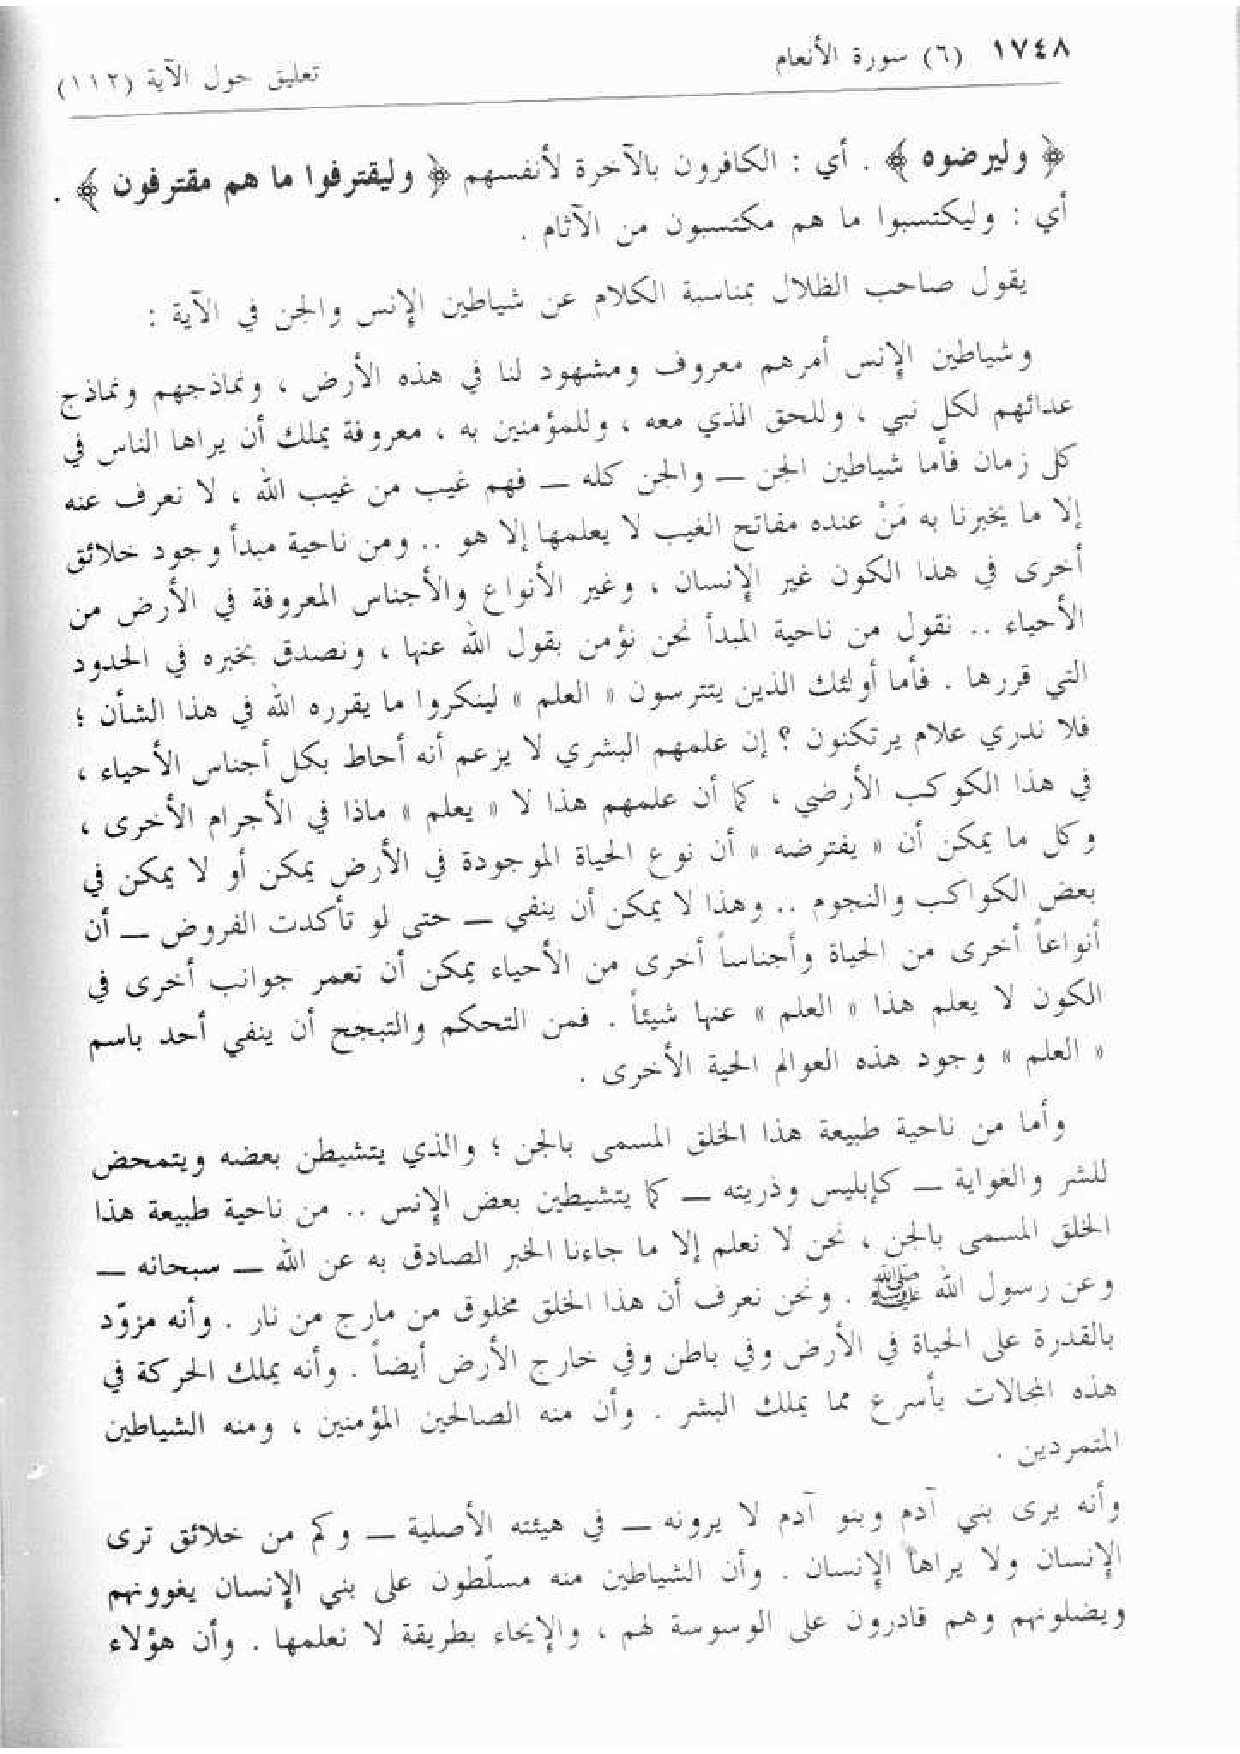 ١٧٤٨ (٦) سورة الأنعام تعليق حول الآية (١١٢)
﴿ وليرضوه ﴾ . أي : الكافرون بالآخرة لأنفسهم ﴿ وليقترفوا ما هم مقترفون ﴾ .
أي : وليكتسبوا ما هم مكتسبون من الآثام .
يقول صاحب الظلال بمناسبة الكلام عن شياطين الإنس والجن في الآية :
وشياطين الإنس أمرهم معروف ومشهود لنا في هذه الأرض ، ونماذجهم ونماذج
عدائهم لكل نبي ، وللحق الذي معه ، وللمؤمنين به ، معروفة يملك أن يراها الناس في
كل زمان فأما شياطين الجن ــ والجن كله ــ فهم غيب من غيب الله ، لا نعرف عنه
إلا ما يخبرنا به مَنْ عنده مفاتح الغيب لا يعلمها إلا هو .. ومن ناحية مبدأ وجود خلائق
أخرى في هذا الكون غير الإنسان ، وغير الأنواع والأجناس المعروفة في الأرض من
الأحياء .. نقول من ناحية المبدأ نحن نؤمن بقول الله عنها ، ونصدق بخبره في الحدود
التي قررها . فأما أولئك الذين يتترسون « العلم » لينكروا ما يقرره الله في هذا الشأن ؛
فلا ندري علام يرتكنون ؟ إن علمهم البشري لا يزعم أنه أحاط بكل أجناس الأحياء ،
في هذا الكوكب الأرضي ، كما أن علمهم هذا لا « يعلم » ماذا في الأجرام الأخرى ،
وكل ما يمكن أن « يفترضه » أن نوع الحياة الموجودة في الأرض يمكن أو لا يمكن في
بعض الكواكب والنجوم .. وهذا لا يمكن أن ينفي ــ حتى لو تأكدت الفروض ــ أن
أنواعاً أخرى من الحياة وأجناساً أخرى من الأحياء يمكن أن تعمر جوانب أخرى في
الكون لا يعلم هذا « العلم » عنها شيئاً . فمن التحكم والتبجح أن ينفي أحد باسم
« العلم » وجود هذه العوالم الحية الأخرى .
وأما من ناحية طبيعة هذا الخلق المسمى بالجن ؛ والذي يتشيطن بعضه ويتمحض
للشر والغواية ــ كإبليس وذريته ــ كما يتشيطين بعض الإنس .. من ناحية طبيعة هذا
الخلق المسمى بالجن ، نحن لا نعلم إلا ما جاءنا الخبر الصادق به عن الله ــ سبحانه ــ
وعن رسول الله ﷺ . ونحن نعرف أن هذا الخلق مخلوق من مارج من نار . وأنه مزوّد
بالقدرة على الحياة في الأرض وفي باطن وفي خارج الأرض أيضاً . وأنه يملك الحركة في
هذه المجالات بأسرع مما يملك البشر . وأن منه الصالحين المؤمنين ، ومنه الشياطين
المتمردين .
وأنه يرى بني آدم وبنو آدم لا يرونه ــ في هيئته الأصلية ــ وكم من خلائق ترى
الإنسان ولا يراها الإنسان . وأن الشياطين منه مسلّطون على بني الإنسان يغوونهم
ويضلونهم وهم قادرون على الوسوسة لهم ، والإيحاء بطريقة لا نعلمها . وأن هؤلاء